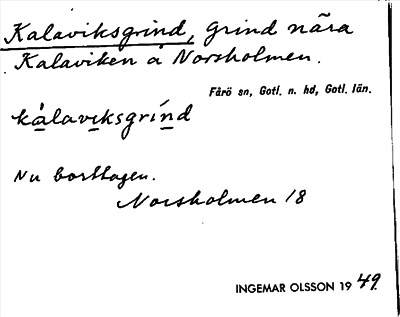 Kalaviksgrind, grind nära
Kalaviken å Norsholmen.
Fårö sn, Gotl. n. hd, Gotl. län.
kålaviksgrind
Nu borttagen.
Norsholmen 18
INGEMAR OLSSON 19 49.